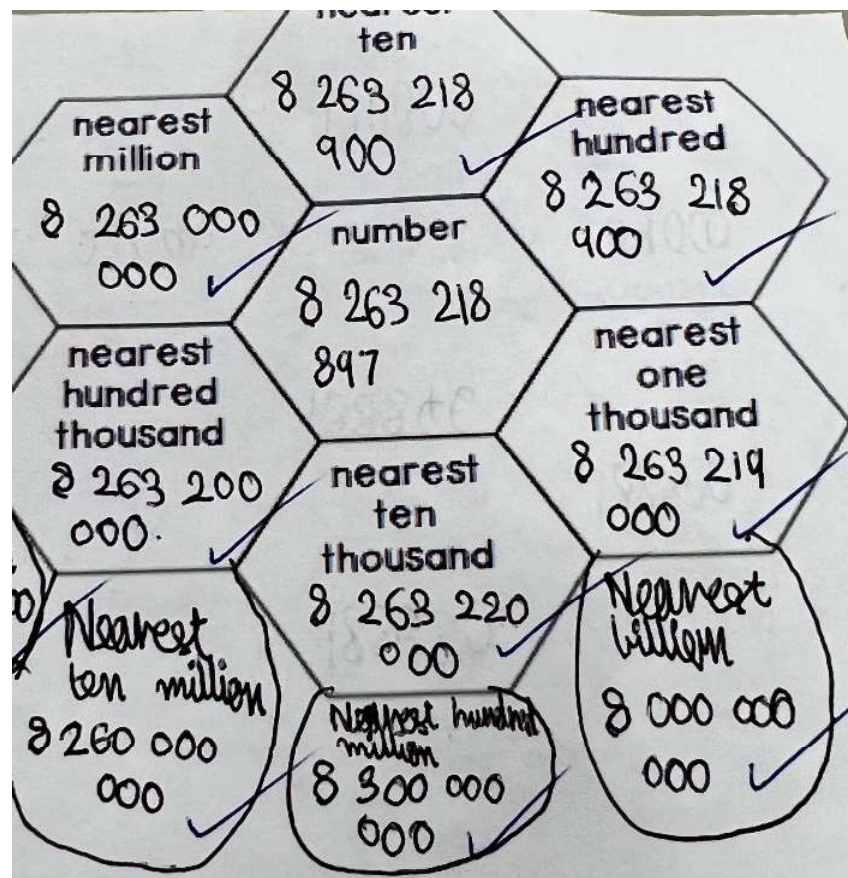 ten
8 263 218
900
nearest
million
8 263 000
000
nearest
hundred
8 263 218
900
number
8 263 218
897
nearest
hundred
thousand
8 263 200
000.
nearest
one
thousand
8 263 219
000
nearest
ten
thousand
8 263 220
000
Nearest
ten million
8 260 000
000
Nearest hundred
million
8 300 000
000
Nearest
billion
8 000 000
000